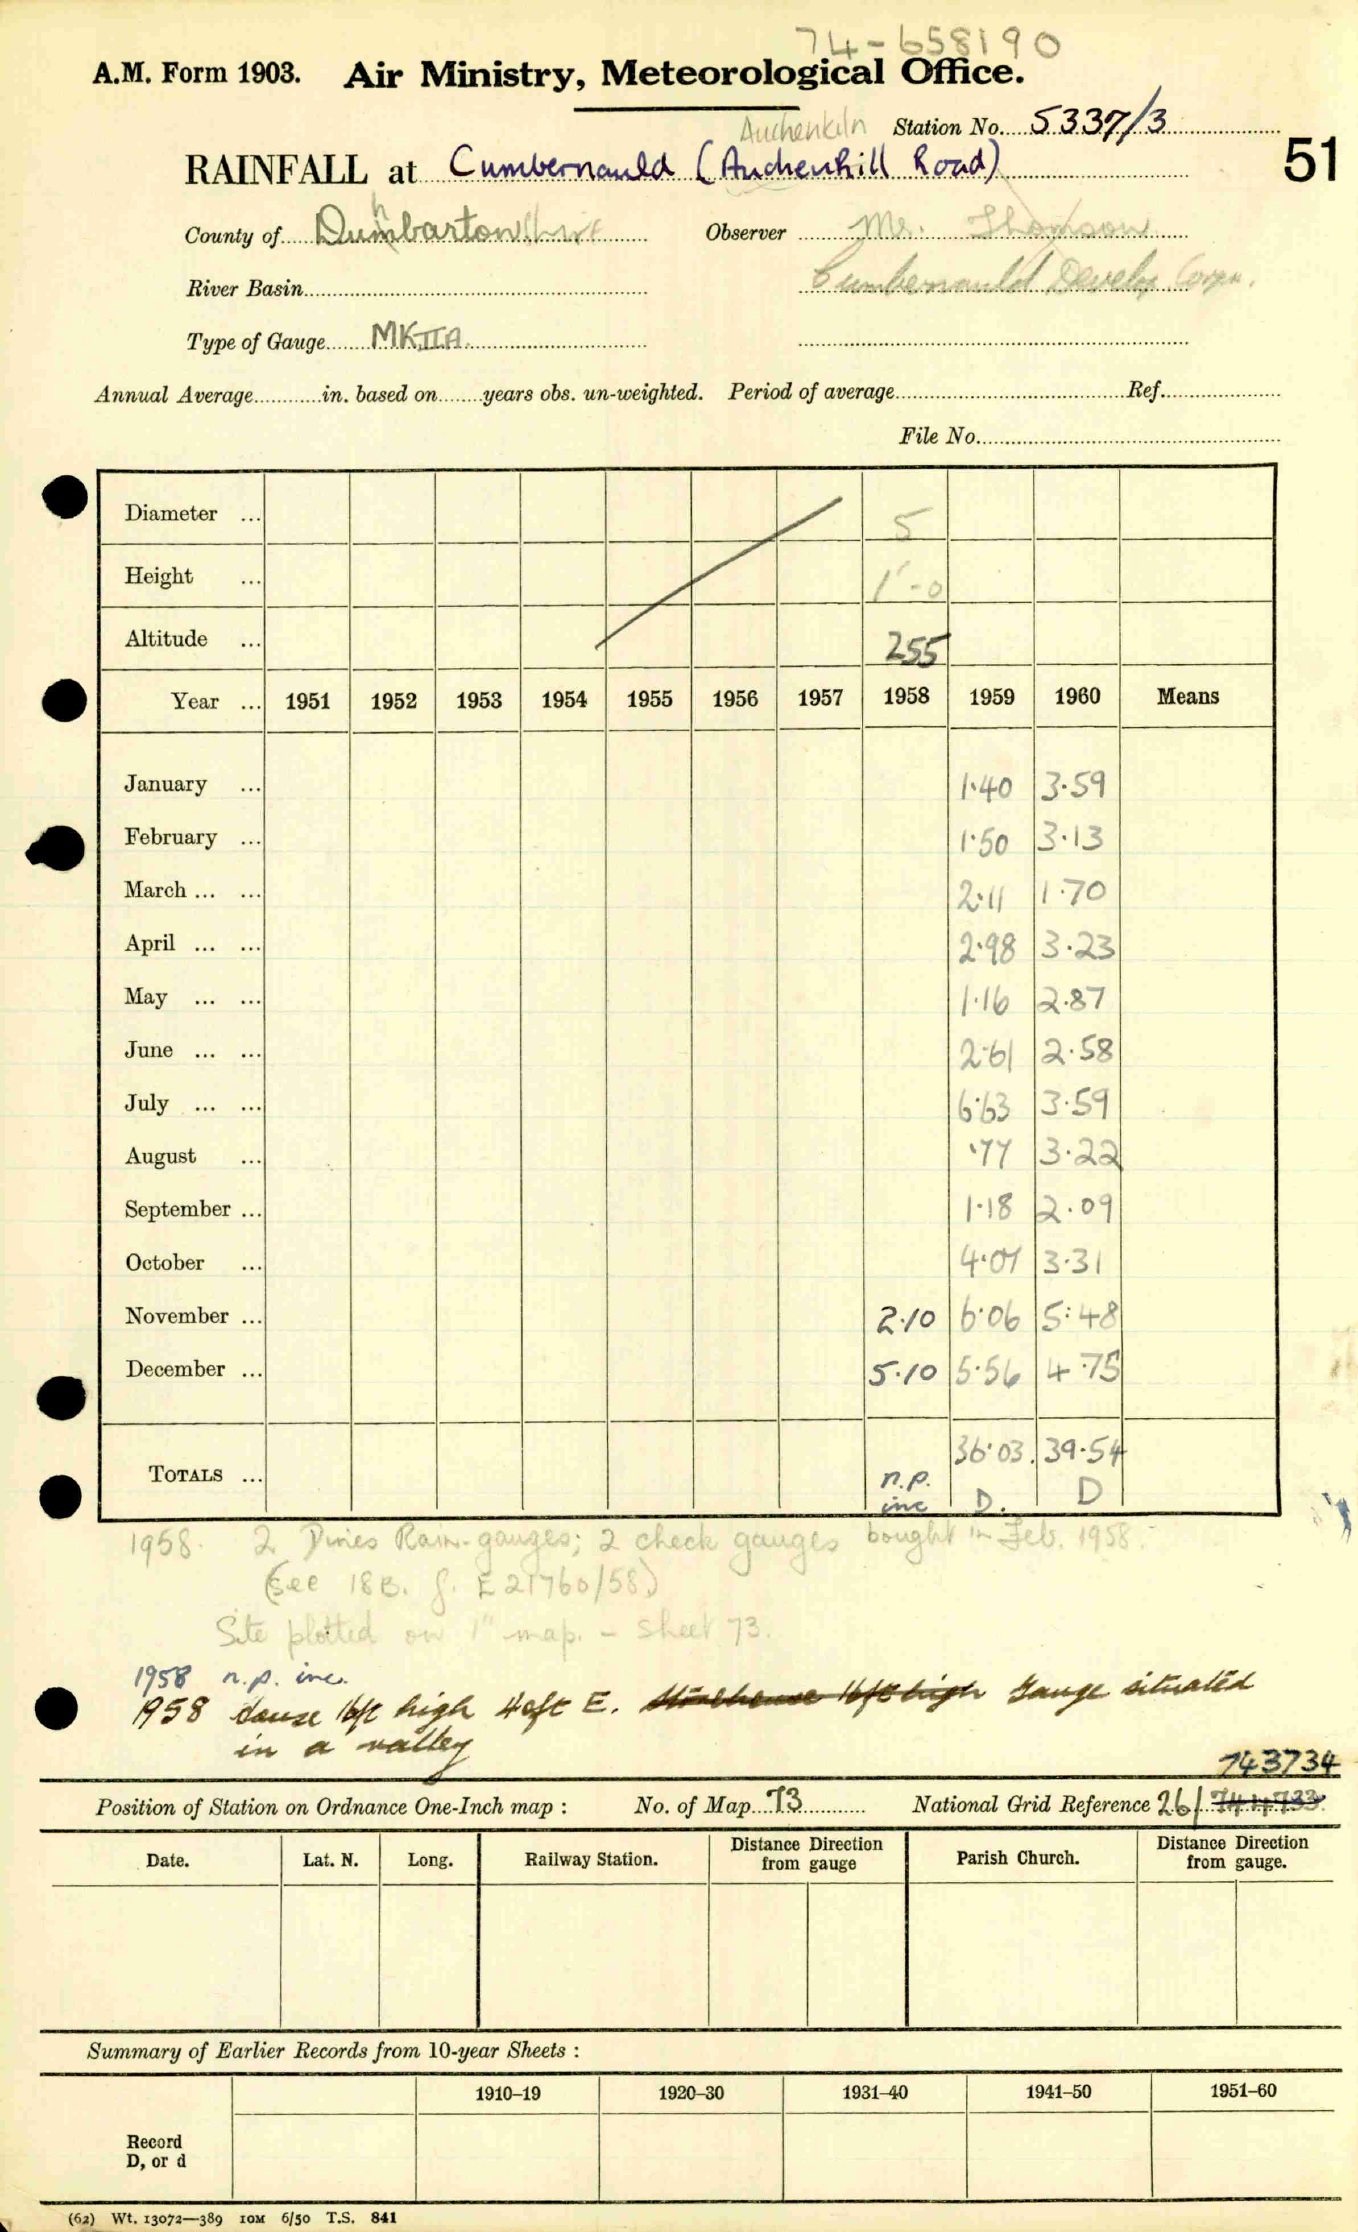 74-658190
A.M. Form 1903. Air Ministry, Meteorological Office.
Auchenkiln Station No. 5337/3
51
RAINFALL at Cumbernauld (Auchenhill Road)
County of Dunbartonshire Observer Mr. Thomson
River Basin Cumbernauld Develop. Corpn.
Type of Gauge MKIIA
Annual Average in. based on years obs. un-weighted. Period of average Ref.
File No.
Diameter ... 5
Height ... 1'-0
Altitude ... 255
Year ... 1951 1952 1953 1954 1955 1956 1957 1958 1959 1960 Means
January ... 1·40 3·59
February ... 1·50 3·13
March ... ... 2·11 1·70
April ... ... 2·98 3·23
May ... ... 1·16 2·87
June ... ... 2·61 2·58
July ... ... 6·63 3·59
August ... ·77 3·22
September ... 1·18 2·09
October ... 4·07 3·31
November ... 2·10 6·06 5·48
December ... 5·10 5·56 4·75
36·03 39·54
TOTALS ... n.p. inc D. D
1958. 2 Dines Rain-gauges; 2 check gauges bought in Feb. 1958.
(See 18B. f. E21760/58)
Site plotted on 1" map. - Sheet 73.
1958 n.p. inc.
1958 house 16ft high 40ft E. Storehouse 16ft high Gauge situated
in a valley
743734
Position of Station on Ordnance One-Inch map : No. of Map 73 National Grid Reference 26/ 744733
Date. Lat. N. Long. Railway Station. Distance Direction from gauge Parish Church. Distance Direction from gauge.
Summary of Earlier Records from 10-year Sheets :
1910–19 1920–30 1931–40 1941–50 1951–60
Record
D, or d
(62) Wt. 13072—389 10M 6/50 T.S. 841